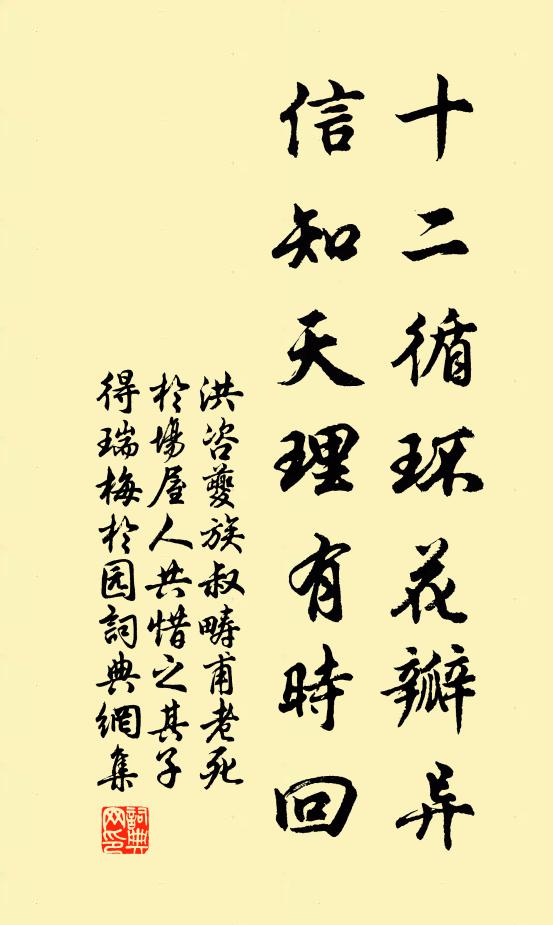 十二循环花瓣异
信知天理有時回
洪咨夔族叔畴甫老死
於場屋人共惜之其子
得瑞梅於园詞典網集
詞典网印